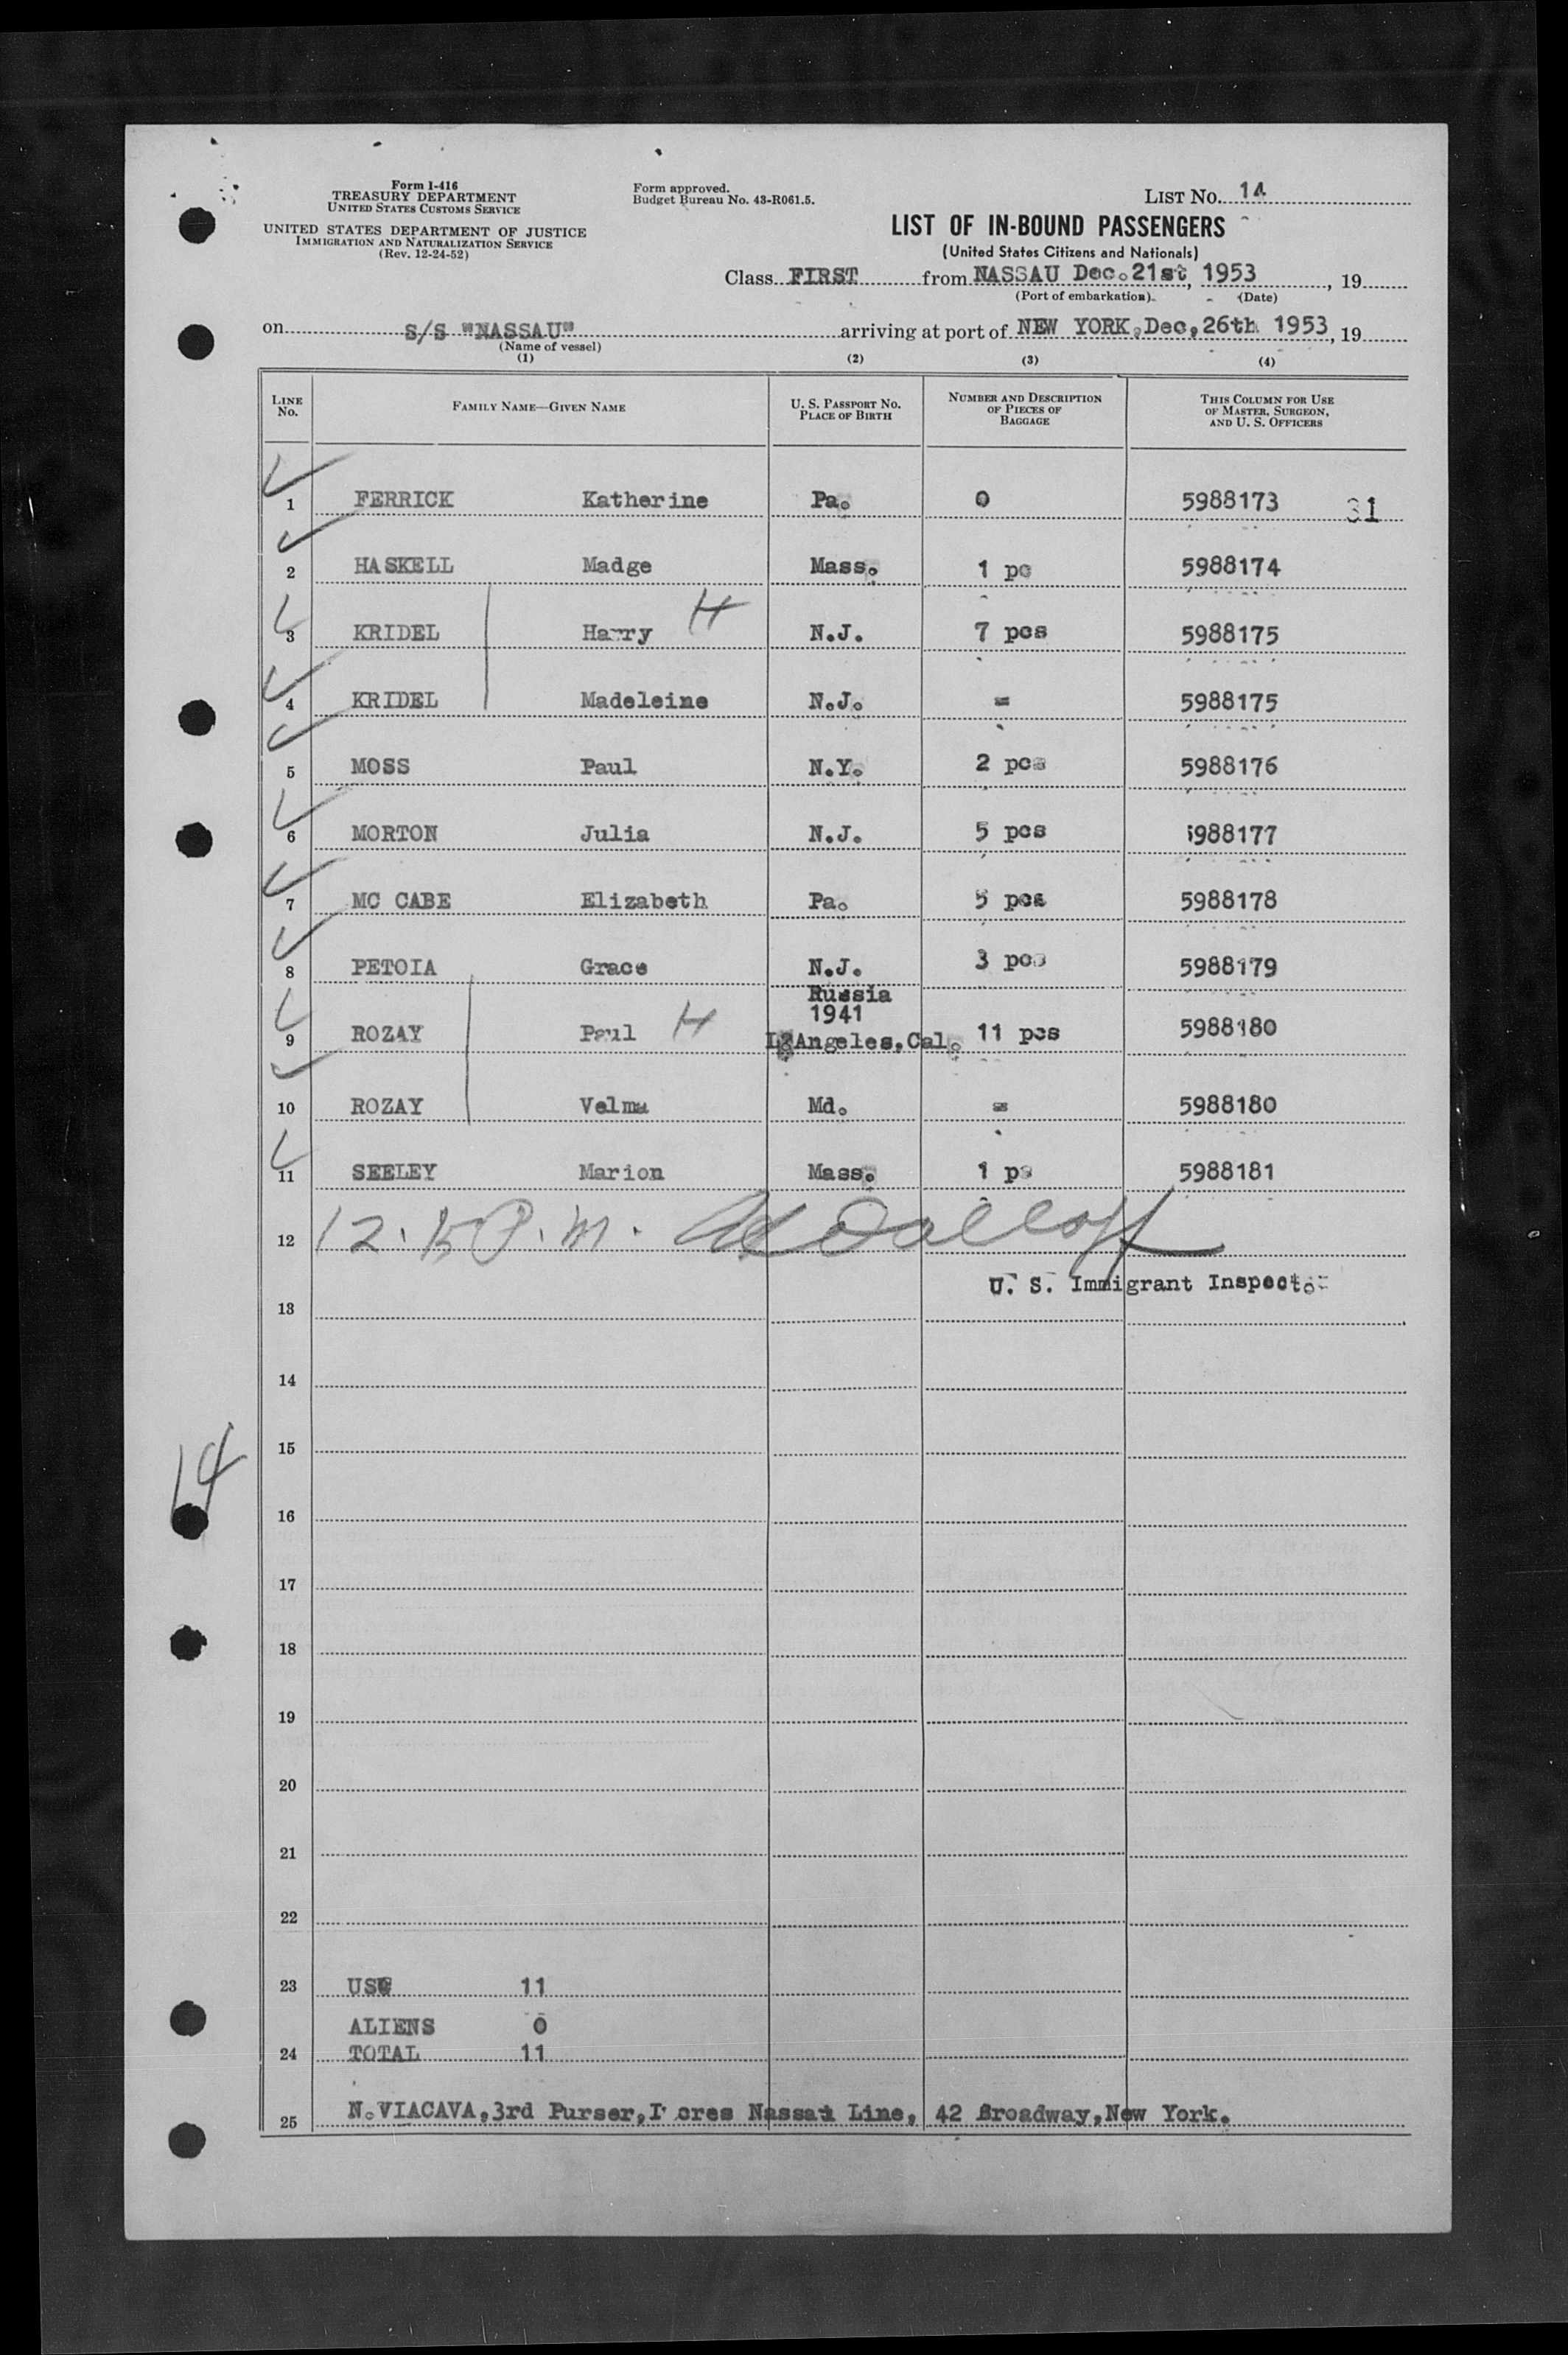 Form I-416
TREASURY DEPARTMENT
UNITED STATES CUSTOMS SERVICE
UNITED STATES DEPARTMENT OF JUSTICE
IMMIGRATION AND NATURALIZATION SERVICE
(Rev. 12-24-52)
Form approved.
Budget Bureau No. 43-R061.5.
LIST No. 14
LIST OF IN-BOUND PASSENGERS
(United States Citizens and Nationals)
Class FIRST from NASSAU Dec. 21st, 1953, 19
(Port of embarkation) (Date)
on S/S "NASSAU" arriving at port of NEW YORK, Dec, 26th 1953, 19
(Name of vessel)
(1) (2) (3) (4)
LINE No. FAMILY NAME—GIVEN NAME U. S. PASSPORT No. PLACE OF BIRTH NUMBER AND DESCRIPTION OF PIECES OF BAGGAGE THIS COLUMN FOR USE OF MASTER, SURGEON, AND U. S. OFFICERS
1 FERRICK Katherine Pa. 0 5988173 31
2 HASKELL Madge Mass. 1 pc 5988174
3 KRIDEL Harry H N.J. 7 pcs 5988175
4 KRIDEL Madeleine N.J. = 5988175
5 MOSS Paul N.Y. 2 pcs 5988176
6 MORTON Julia N.J. 5 pcs 5988177
7 MC CABE Elizabeth Pa. 5 pcs 5988178
8 PETOIA Grace N.J. 3 pcs 5988179
Russia
1941
9 ROZAY Paul H Angeles, Cal. 11 pcs 5988180
10 ROZAY Velma Md. = 5988180
11 SEELEY Marion Mass. 1 pc 5988181
12 12. P.M.
U. S. Immigrant Inspector
13
14
15
14
16
17
18
19
20
21
22
23 USC 11
ALIENS 0
24 TOTAL 11
25 N. VIACAVA, 3rd Purser, Nassau Line, 42 Broadway, New York.